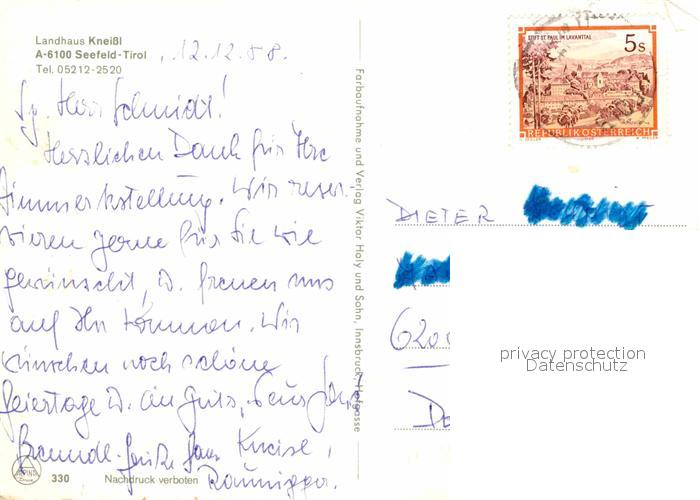 Landhaus Kneißl
A-6100 Seefeld-Tirol
Tel. 05212-2520
, 12.12.88.
Sg. Herr Schmidt!
Herzlichen Dank für Ihre
Zimmerbestellung. Wir reser-
vieren gerne für Sie wie
gewünscht, u. freuen uns
auf Ihr Kommen. Wir
wünschen noch schöne
Feiertage u. ein gutes, neues Jahr
Kneisl,
330
Nachdruck verboten
Farbaufnahme und Verlag Viktor Holy und Sohn, Innsbruck, Hofgasse
STIFT ST. PAUL IM LAVANTTAL
5s
REPUBLIK ÖSTERREICH
DIETER
620
privacy protection
Datenschutz